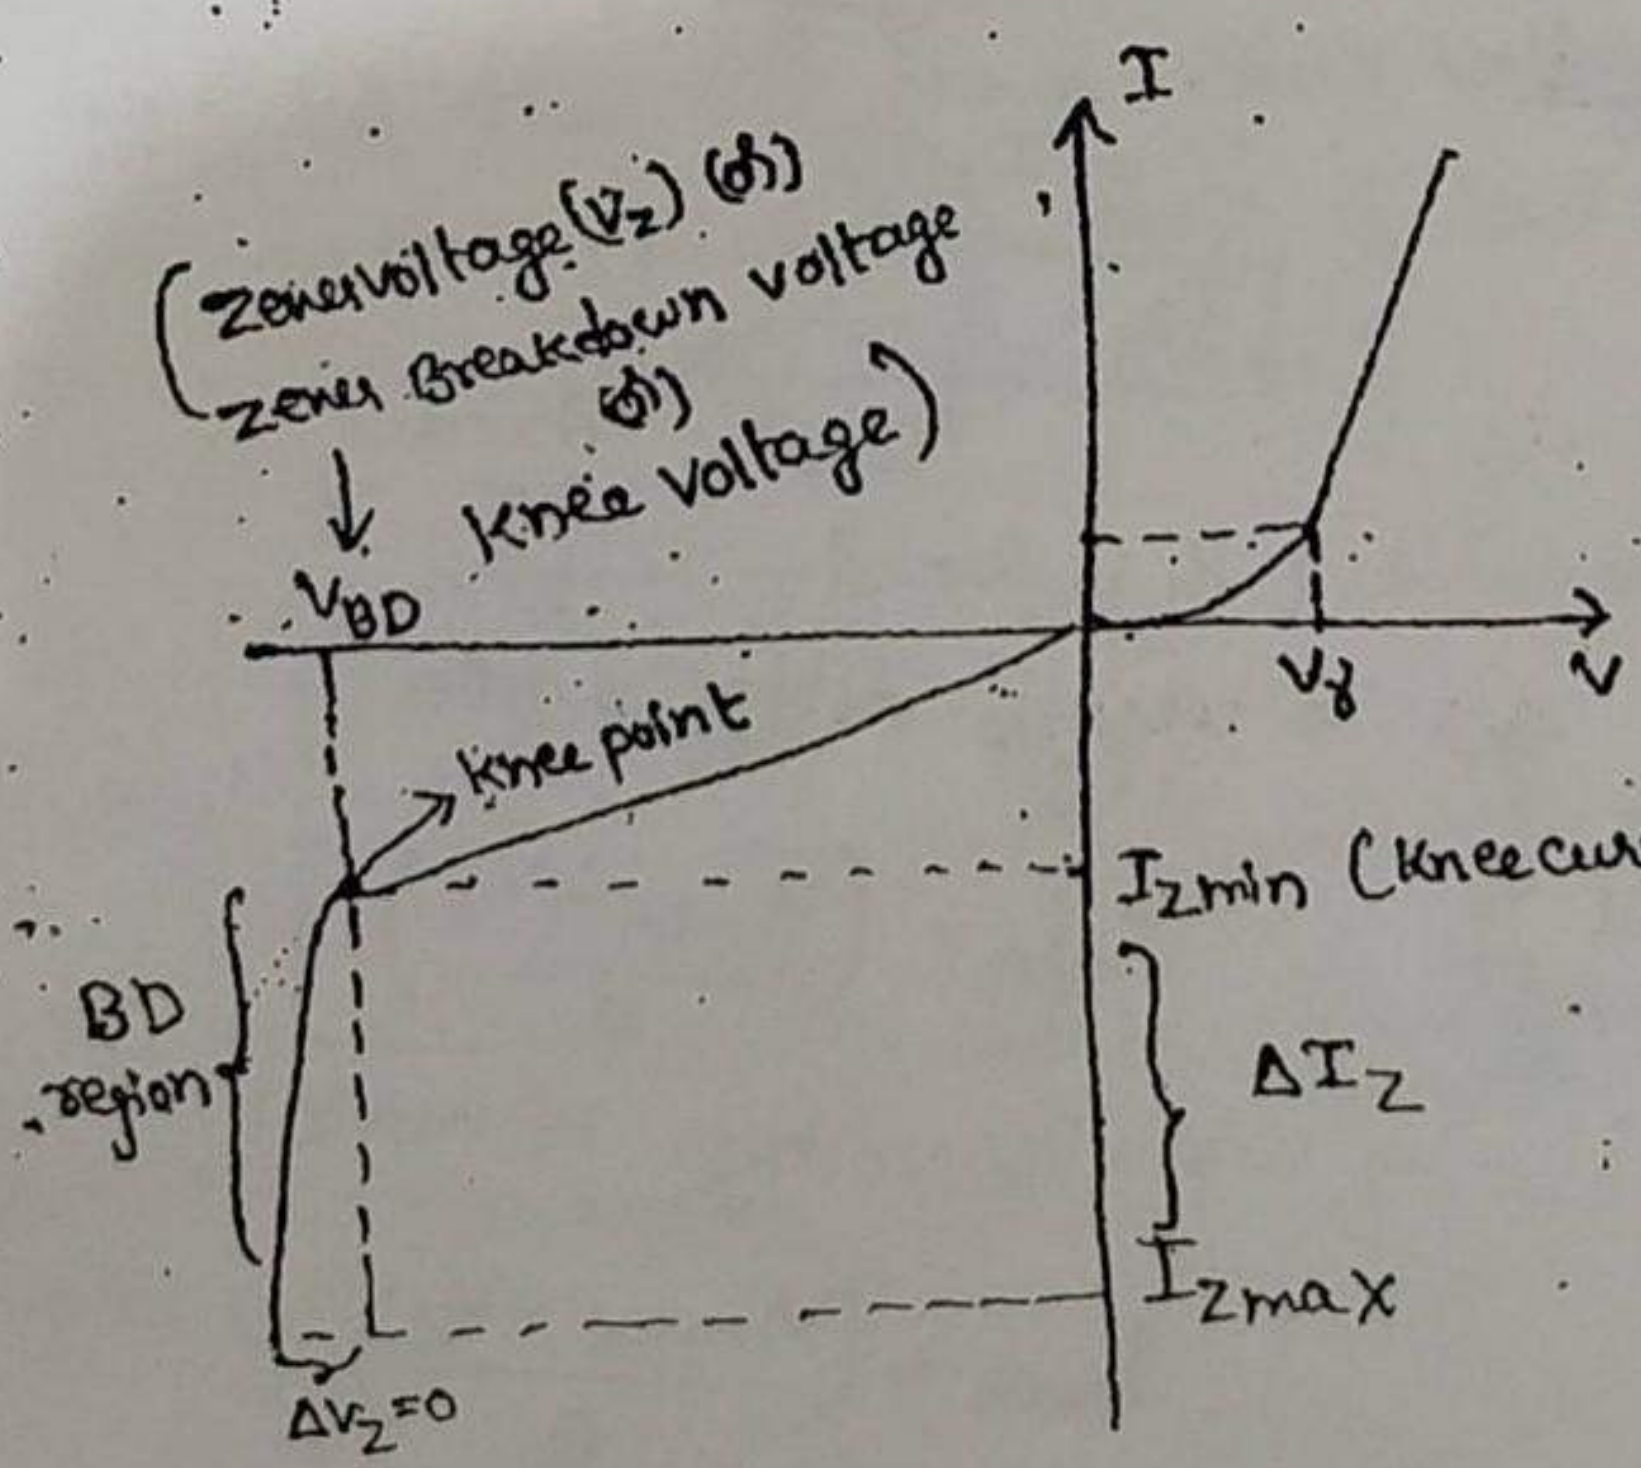 I
(Zener voltage (Vz) (or)
Zener Breakdown voltage
(or)
Knee voltage)
VBD
Vγ
V
Knee point
Izmin (Knee cur
BD
region
ΔIz
Izmax
ΔVz=0